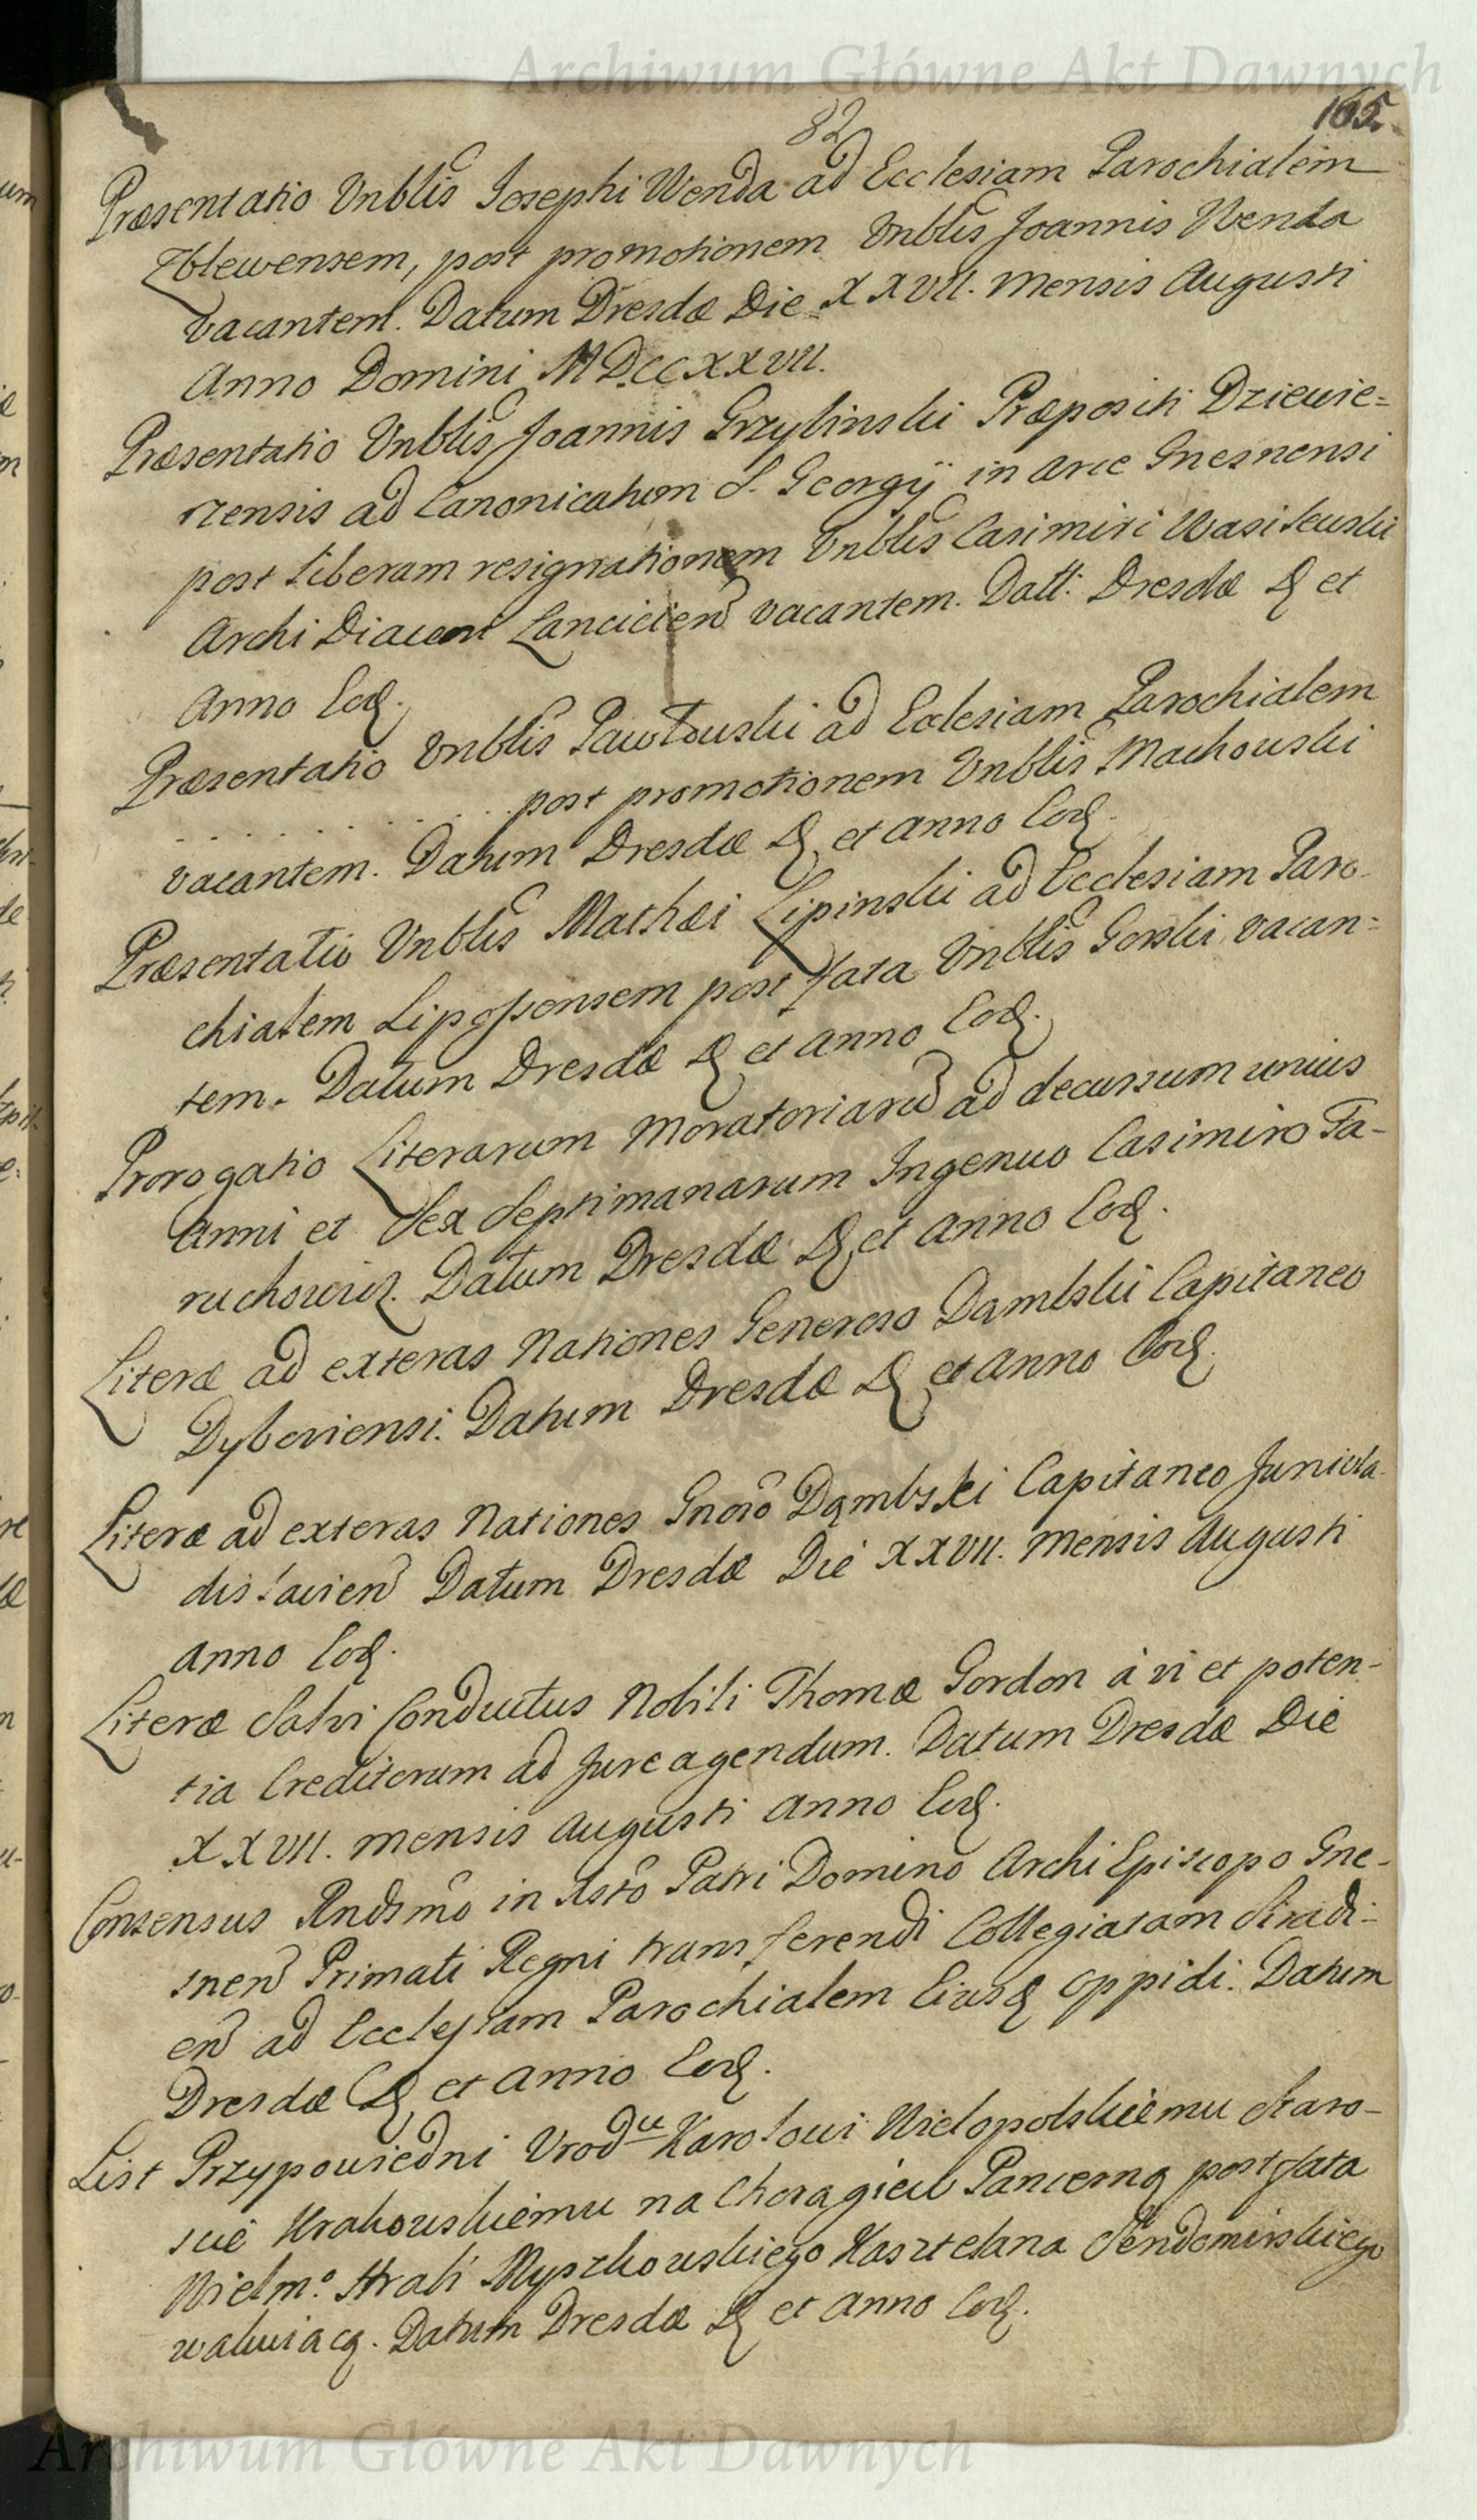 Archiwum Główne Akt Dawnych
82
165.
Præsentatio Vnblis Josephi Wenda ad Ecclesiam Parochialem
Zblewensem, post promotionem Vnblis Joannis Wenda
vacantem. Datum Dresdæ Die XXVII. mensis Augusti
Anno Domini MDCCXXVII.
Præsentatio Vnblis Joannis Grzybinski Præpositi Dziewie=
rzensis ad Canonicatum S. Georgÿ in arce Gnesnensi
post liberam resignationem Vnblis Casimiri Wasilewski
Archi Diacon Lancicien vacantem. Datt: Dresdæ D et
Anno Eod.
Præsentatio Vnblis Pawłowski ad Eclesiam Parochialem
. . . . . . . . post promotionem Vnblis Machowski
vacantem. Datum Dresdæ D et anno Eod.
Præsentatio Vnblis Mathæi Lipinski ad Ecclesiam Paro-
chialem post fata Vnblis Gorski vacan=
tem. Datum Dresdæ D et anno Eod.
Prorogatio Literarum Moratoriaru ad decursum unius
Anni et Sex Septimanarum Ingenuo Casimiro Ta-
ruchowicz. Datum Dresdæ D et anno Eod.
Literæ ad exteras Nationes Generoso Dąmbski Capitaneo
Dyboviensi. Datum Dresdæ D et anno Eod.
Literæ ad exteras Nationes Gnoso Dąmbski Capitaneo Juniwla-
dislavien Datum Dresdæ Die XXVII. mensis Augusti
anno Eod.
Literæ Salvi Conductus Nobili Thomæ Gordon à vi et poten-
tia Creditorum ad Jure agendum. Datum Dresdæ Die
XXVII. mensis Augusti anno Eod.
Consensus Rndsmo in Xsto Patri Domino Archi Episcopo Gne-
snen Primati Regni transferendi Collegiatam Siradi-
en ad Ecclesiam Parochialem Eiusd oppidi. Datum
Dresdæ D et anno Eod.
List Przypowiedni Vrod<sup>u</sup> Karolowi Wielopolskiemu Staro-
scie Krakowskiemu na Choragiew Pancerną post fata
Wielm.º Hrabi Myszkowskiego Kasztelana Sendomirskiego
wakuiacą. Datum Dresdæ D et anno Eod.
Archiwum Główne Akt Dawnych